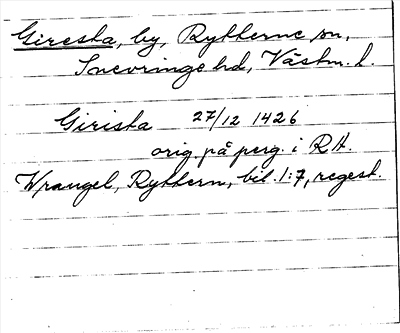 Giresta, by, Rytterne sn,
Snevringe hd, Västm. l.
Girista 27/12 1426
orig. på perg. i R.A.
Wrangel, Ryttern, bil. 1:7, regest.